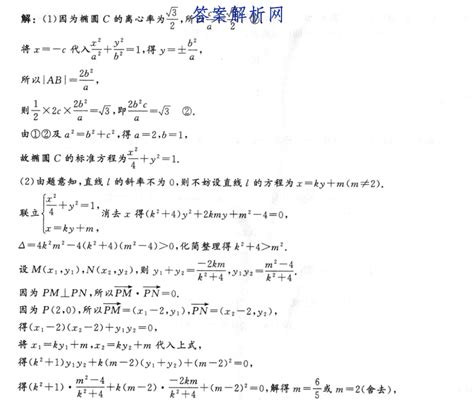 答案解析网
解：(1)因为椭圆 C 的离心率为√3/2，所
将 x=-c 代入 x²/a²+y²/b²=1，得 y=±b²/a，
所以|AB|=2b²/a，
则 1/2×2c×2b²/a=√3，即 2b²c/a=√3 ②．
由①②及 a²=b²+c²，得 a=2，b=1，
故椭圆 C 的标准方程为 x²/4+y²=1．
(2)由题意知，直线 l 的斜率不为 0，则不妨设直线 l 的方程为 x=ky+m(m≠2)．
联立{x²/4+y²=1，x=ky+m，消去 x 得(k²+4)y²+2kmy+m²-4=0，
Δ=4k²m²-4(k²+4)(m²-4)>0，化简整理得 k²+4>m²．
设 M(x₁，y₁)，N(x₂，y₂)，则 y₁+y₂=-2km/k²+4，y₁y₂=m²-4/k²+4．
因为 PM⊥PN，所以PM·PN=0．
因为 P(2，0)，所以PM=(x₁-2，y₁)，PN=(x₂-2，y₂)，
得(x₁-2)(x₂-2)+y₁y₂=0，
将 x₁=ky₁+m，x₂=ky₂+m 代入上式，
得(k²+1)y₁y₂+k(m-2)(y₁+y₂)+(m-2)²=0，
得(k²+1)·m²-4/k²+4+k(m-2)·-2km/k²+4+(m-2)²=0，解得 m=6/5或 m=2(舍去)，